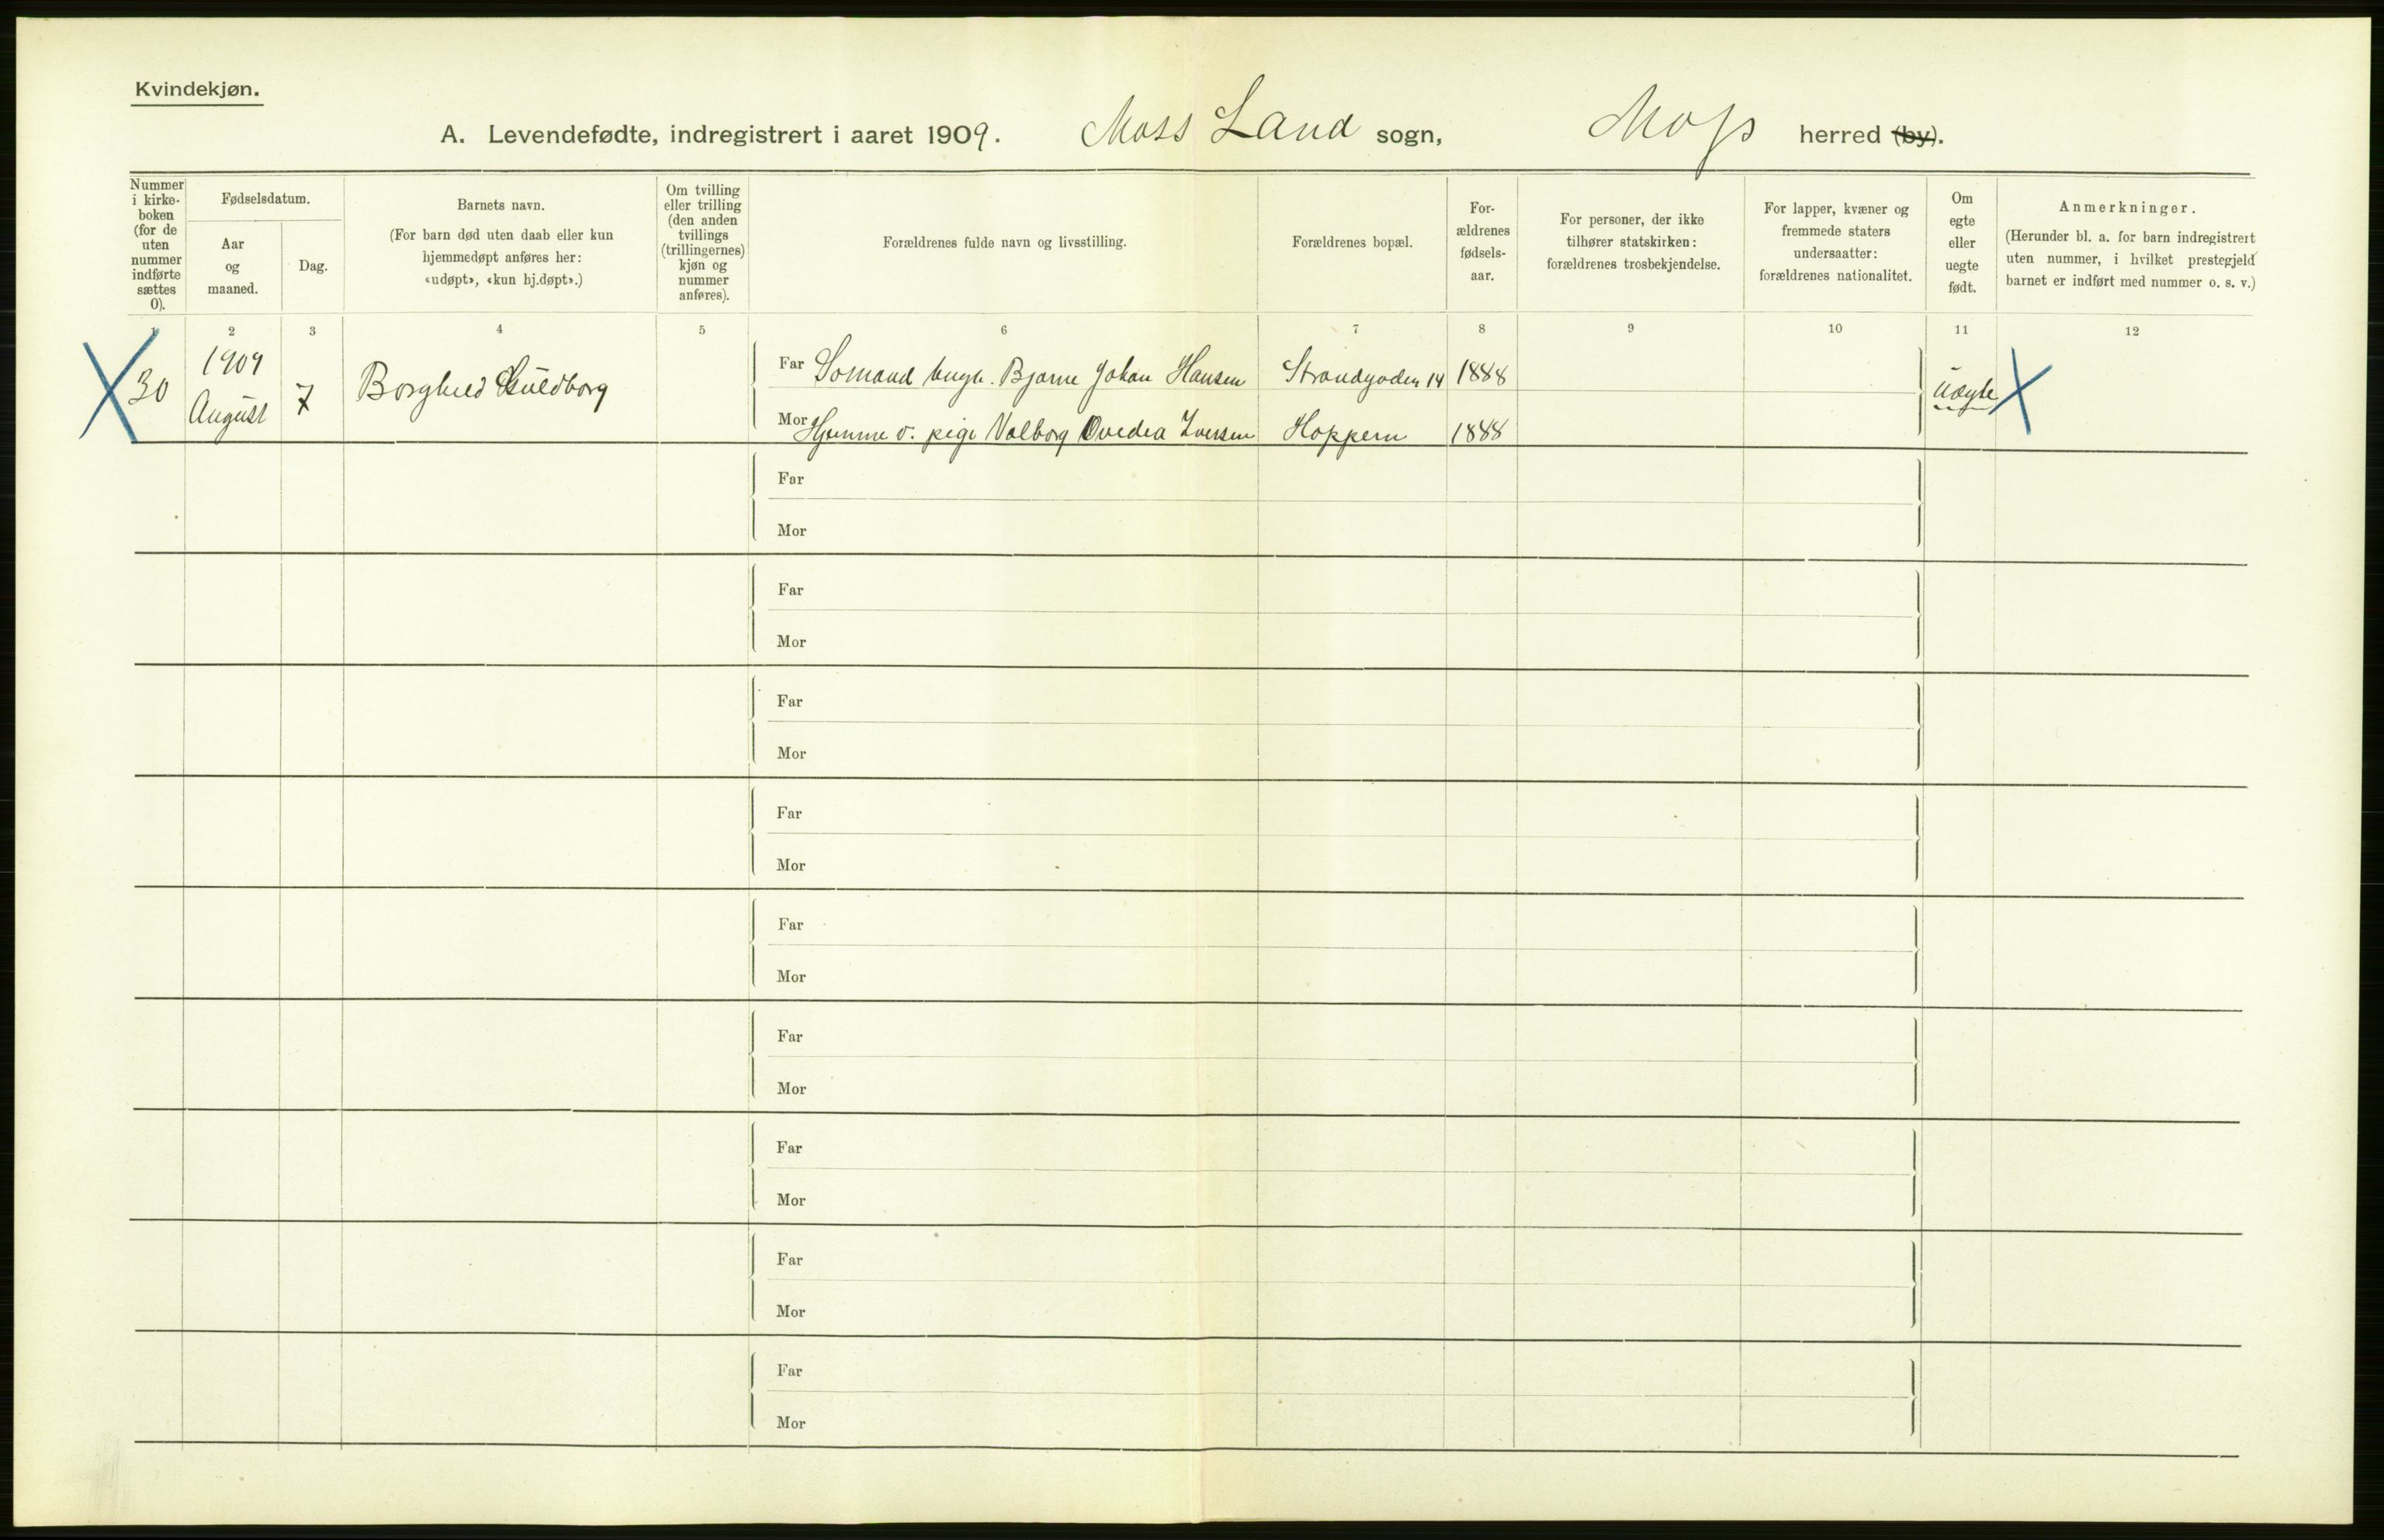 Kvindekjøn.
A. Levendefødte, indregistrert i aaret 1909. Moss Land sogn, Moss herred (by).
Nummer i kirke-boken (for de uten nummer indførte sættes 0).
Fødselsdatum.
Aar og maaned.
Dag.
Barnets navn.
(For barn død uten daab eller kun
hjemmedøpt anføres her:
«udøpt», «kun hj.døpt».)
Om tvilling
eller trilling
(den anden
tvillings
(trillingernes)
kjøn og
nummer
anføres).
Forældrenes fulde navn og livsstilling.
Forældrenes bopæl.
For-
ældrenes
fødsels-
aar.
For personer, der ikke
tilhører statskirken:
forældrenes trosbekjendelse.
For lapper, kvæner og
fremmede staters
undersaatter:
forældrenes nationalitet.
Om
egte
eller
uegte
født.
Anmerkninger.
(Herunder bl. a. for barn indregistrert
uten nummer, i hvilket prestegjeld
barnet er indført med nummer o. s. v.)
1 2 3 4 5 6 7 8 9 10 11 12
30 1909 August 7 Borghild Guldborg
Far Sømand ungk. Bjarne Johan Hansen Strandgaden 14 1888
Mor Hjemme v. pige Valborg Ovedia Iversen Hoppern 1888
Uægte
Far
Mor
Far
Mor
Far
Mor
Far
Mor
Far
Mor
Far
Mor
Far
Mor
Far
Mor
Far
Mor